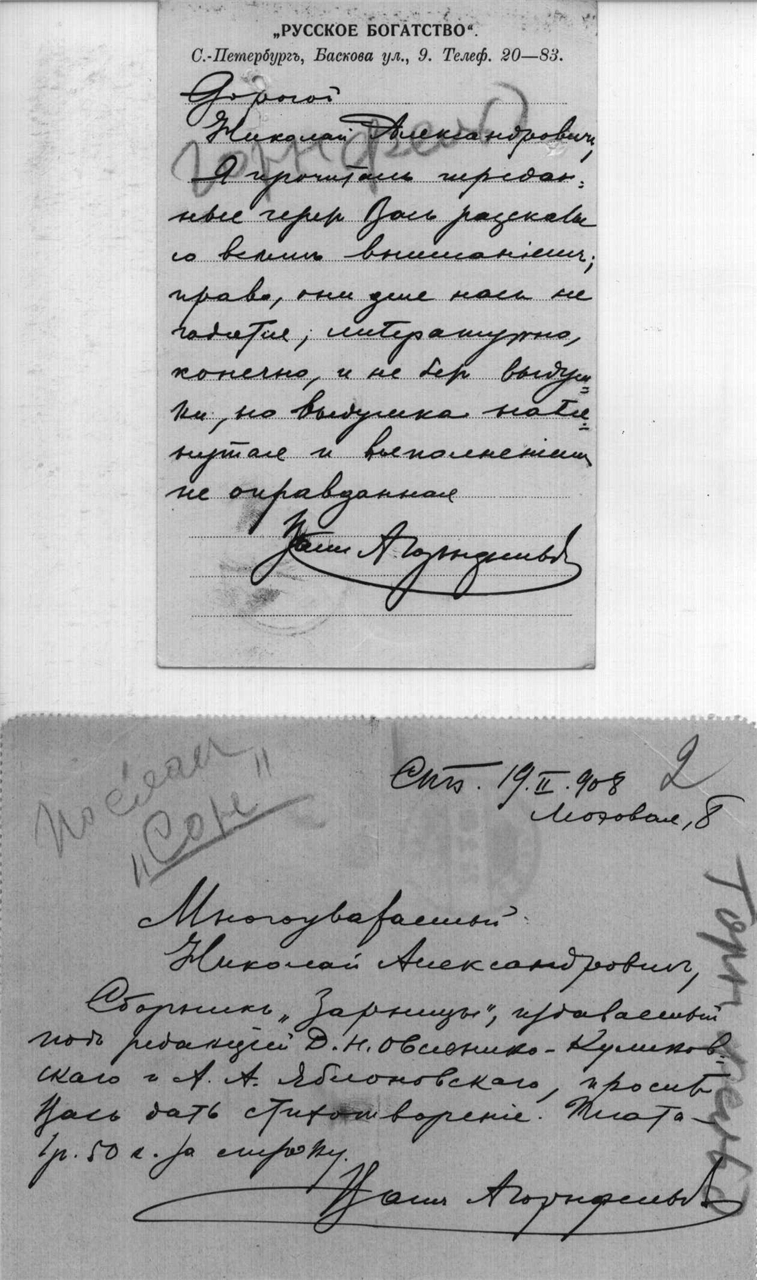 „РУССКОЕ БОГАТСТВО“.
С.-Петербургъ, Баскова ул., 9. Телеф. 20—83.
Дорогой
Николай Александровичъ,
Горнфельд
Я прочиталъ передан-
ные через Васъ разсказы
со всемъ вниманіемъ;
право, они для насъ не
годятся; литературно,
конечно, и не без выдум-
ки, но выдумка натя-
нутая и выполненіемъ
не оправданная
Вашъ А Горнфельдъ
Послал
„Соре“
2
Спб. 19.II.908
Моховая, 8
Многоуважаемый
Николай Александровичъ,
Сборникъ „Зарницы“, издаваемый
подъ редакціей Д. Н. Овсянико-Куликов-
скаго и А. А. Яблоновскаго, проситъ
Васъ дать стихотвореніе. Плата —
1р. 50 к. за строку.
Вашъ А Горнфельдъ
Горнфельд